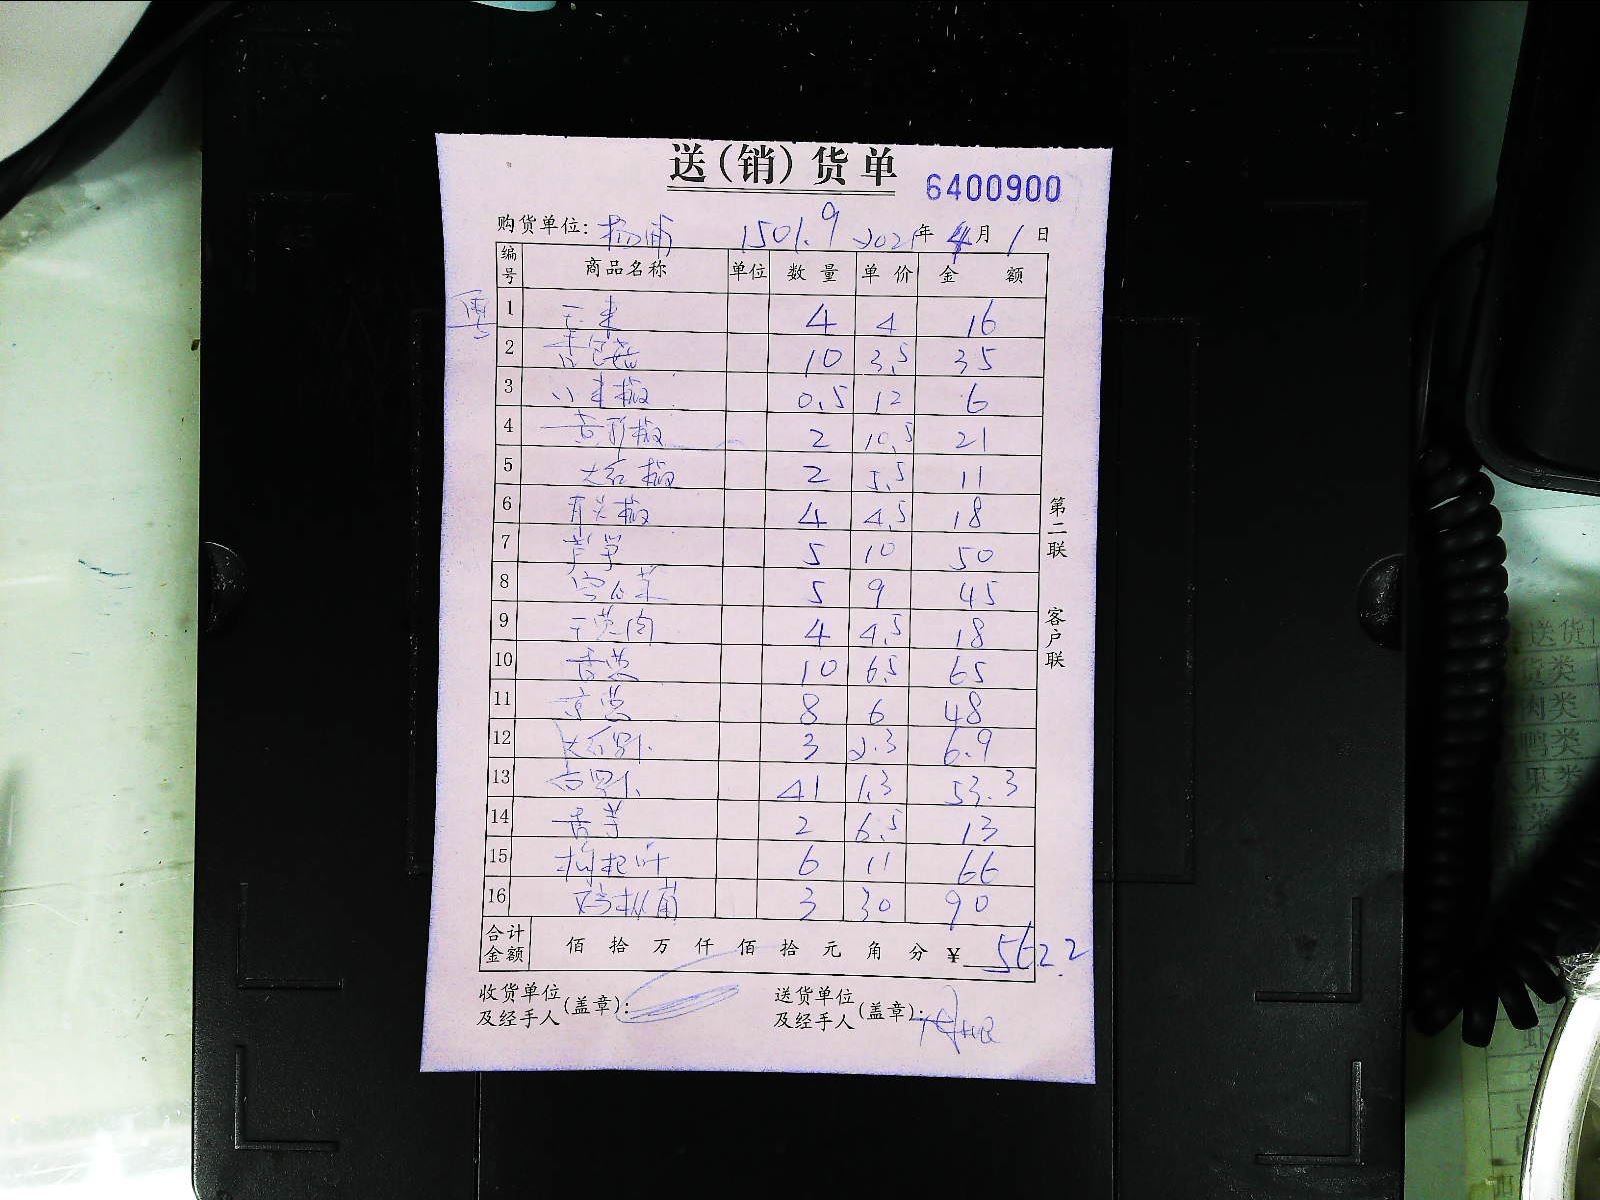 送(销)货单
6400900
购货单位: 杨浦 1501.9 2021年4月1日
编号 商品名称 单位 数量 单价 金额
1 玉米 4 4 16
2 杏鲍菇 10 3.5 35
3 小米椒 0.5 12 6
4 黄彩椒 2 10.5 21
5 大红椒 2 5.5 11
6 青尖椒 4 4.5 18
7 芦笋 5 10 50
8 空心菜 5 9 45
9 4 4.5 18
10 香葱 10 6.5 65
11 京葱 8 6 48
12 3 2.3 6.9
13 41 1.3 53.3
14 香芋 2 6.5 13
15 枸杞叶 6 11 66
16 鸡枞菌 3 30 90
合计金额 佰 拾 万 仟 佰 拾 元 角 分 ¥ 562.2
收货单位及经手人(盖章):
送货单位及经手人(盖章):
第二联 客户联
送货
货类
肉类
鸭类
果类